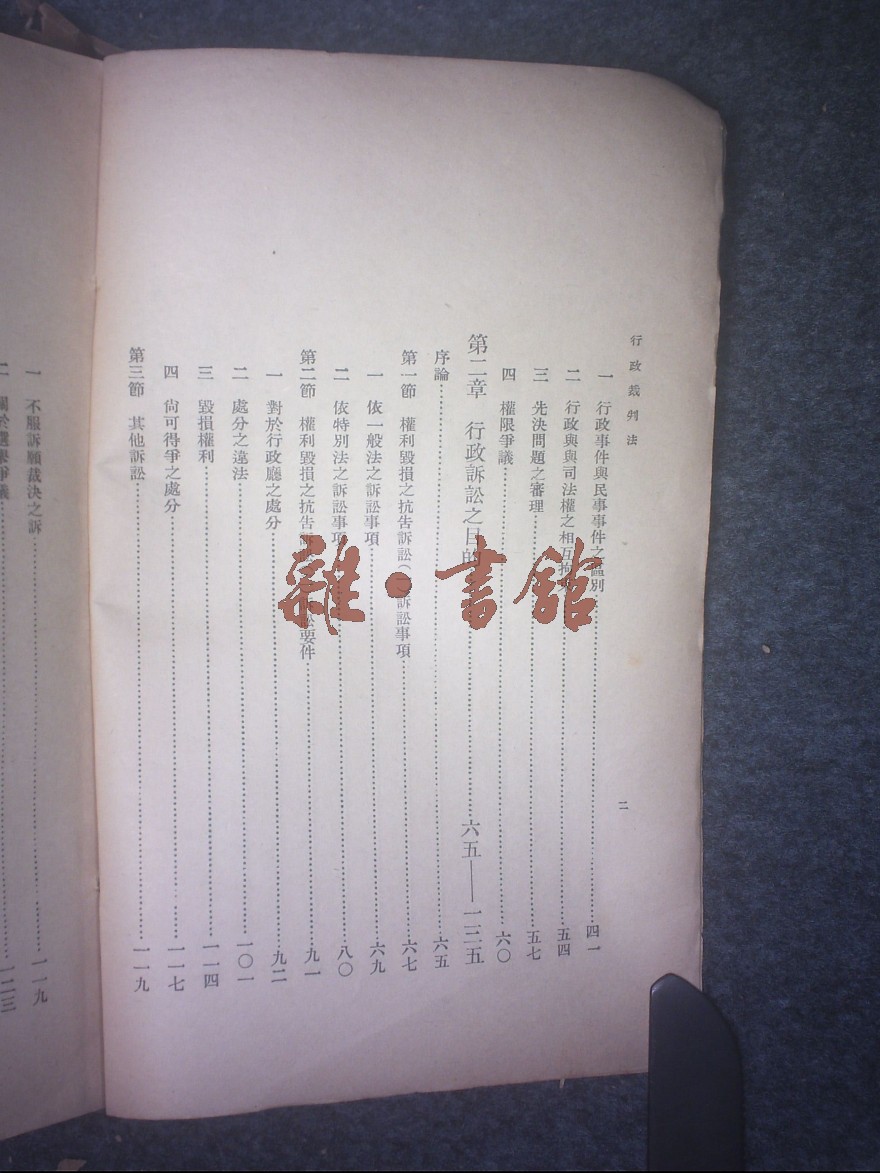 行政裁判法
二
一 行政事件與民事事件之區別 四一
二 行政與與司法權之相互拘束 五四
三 先決問題之審理 五七
四 權限爭議 六〇
第二章 行政訴訟之目的 六五——一三五
序論 六五
第一節 權利毀損之抗告訴訟(一)訴訟事項 六七
一 依一般法之訴訟事項 六九
二 依特別法之訴訟事項 八〇
第二節 權利毀損之抗告訴訟 要件 九一
一 對於行政廳之處分 九二
二 處分之違法 一〇一
三 毀損權利 一一四
四 尚可得爭之處分 一一七
第三節 其他訴訟 一一九
一 不服訴願裁決之訴 一一九
二 關於選舉爭議 一二三
雜·書館